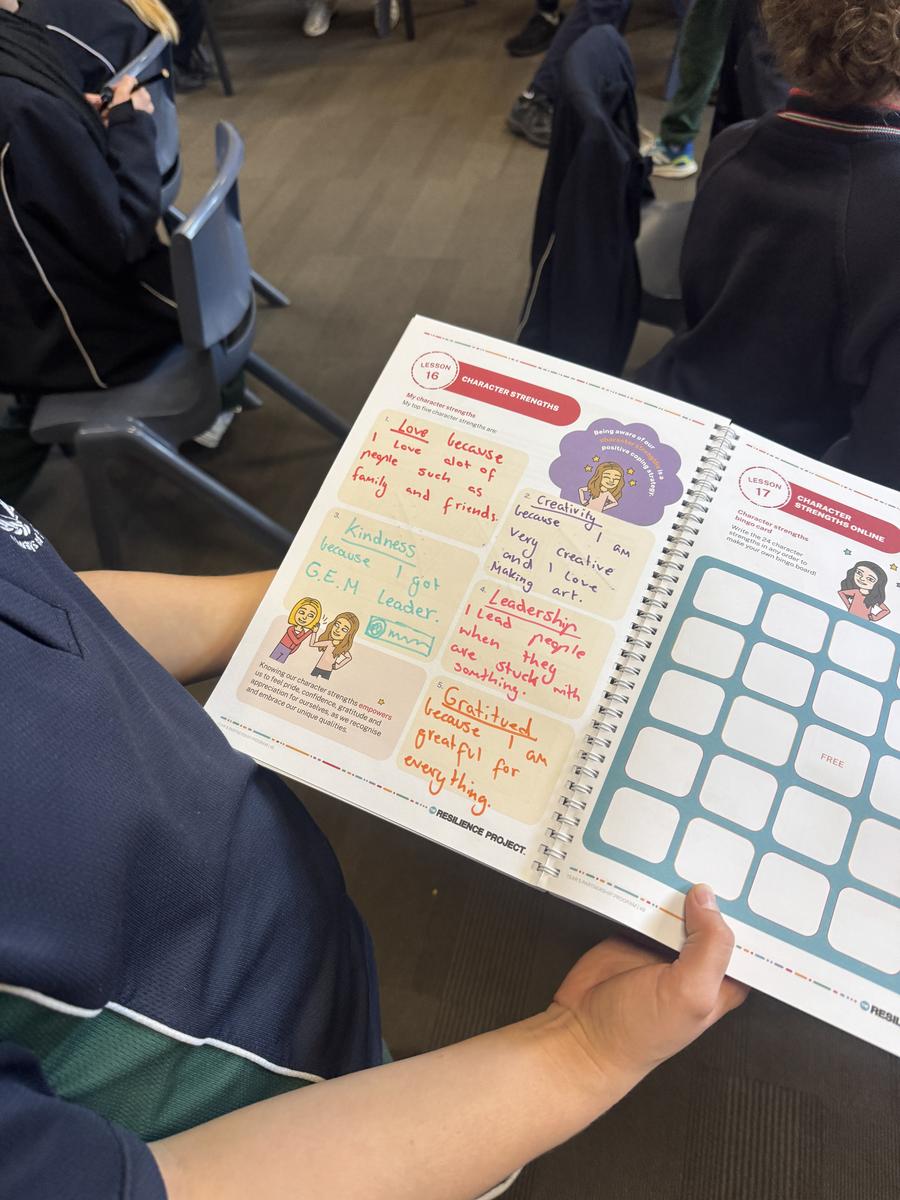 LESSON
16
CHARACTER STRENGTHS
My character strengths
My top five character strengths are:
1.
Love because
I Love alot of
people such as
family and friends.
Being aware of our
character strengths is a
positive coping strategy.
2. Creativity
because I am
very creative
and I love
Making art.
3.
Kindness
because I got
G.E.M Leader.
4.
Leadership
I Lead people
when they
are stuck with
somthing.
Knowing our character strengths empowers
us to feel pride, confidence, gratitude and
appreciation for ourselves, as we recognise
and embrace our unique qualities.
5.
Gratitued
because I am
greatful for
everything.
THE RESILIENCE PROJECT.
LESSON
17
CHARACTER
STRENGTHS ONLINE
Character strengths
bingo card
Write the 24 character
strengths in any order to
make your own bingo board!
FREE
RESIL